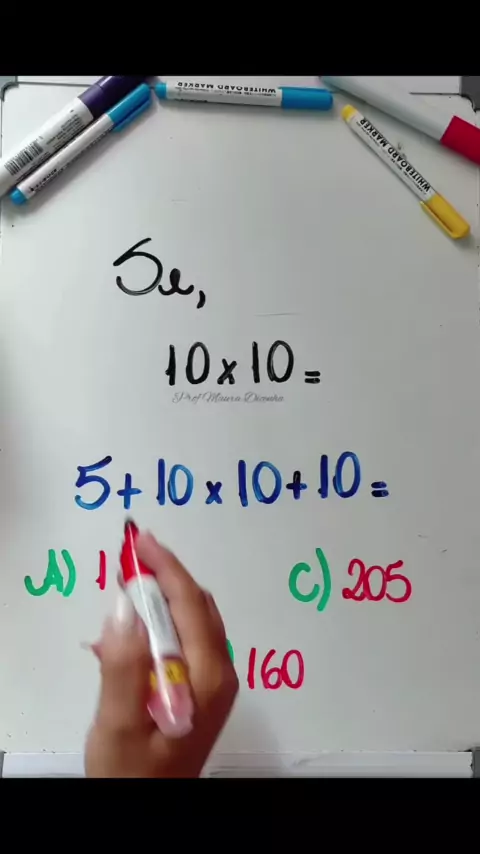 WHITEBOARD MARKER
WHITEBOARD MARKER
Se,
10 x 10 =
Prof Maura Dicenha
5 + 10 x 10 + 10 =
A) 1
C) 205
) 160